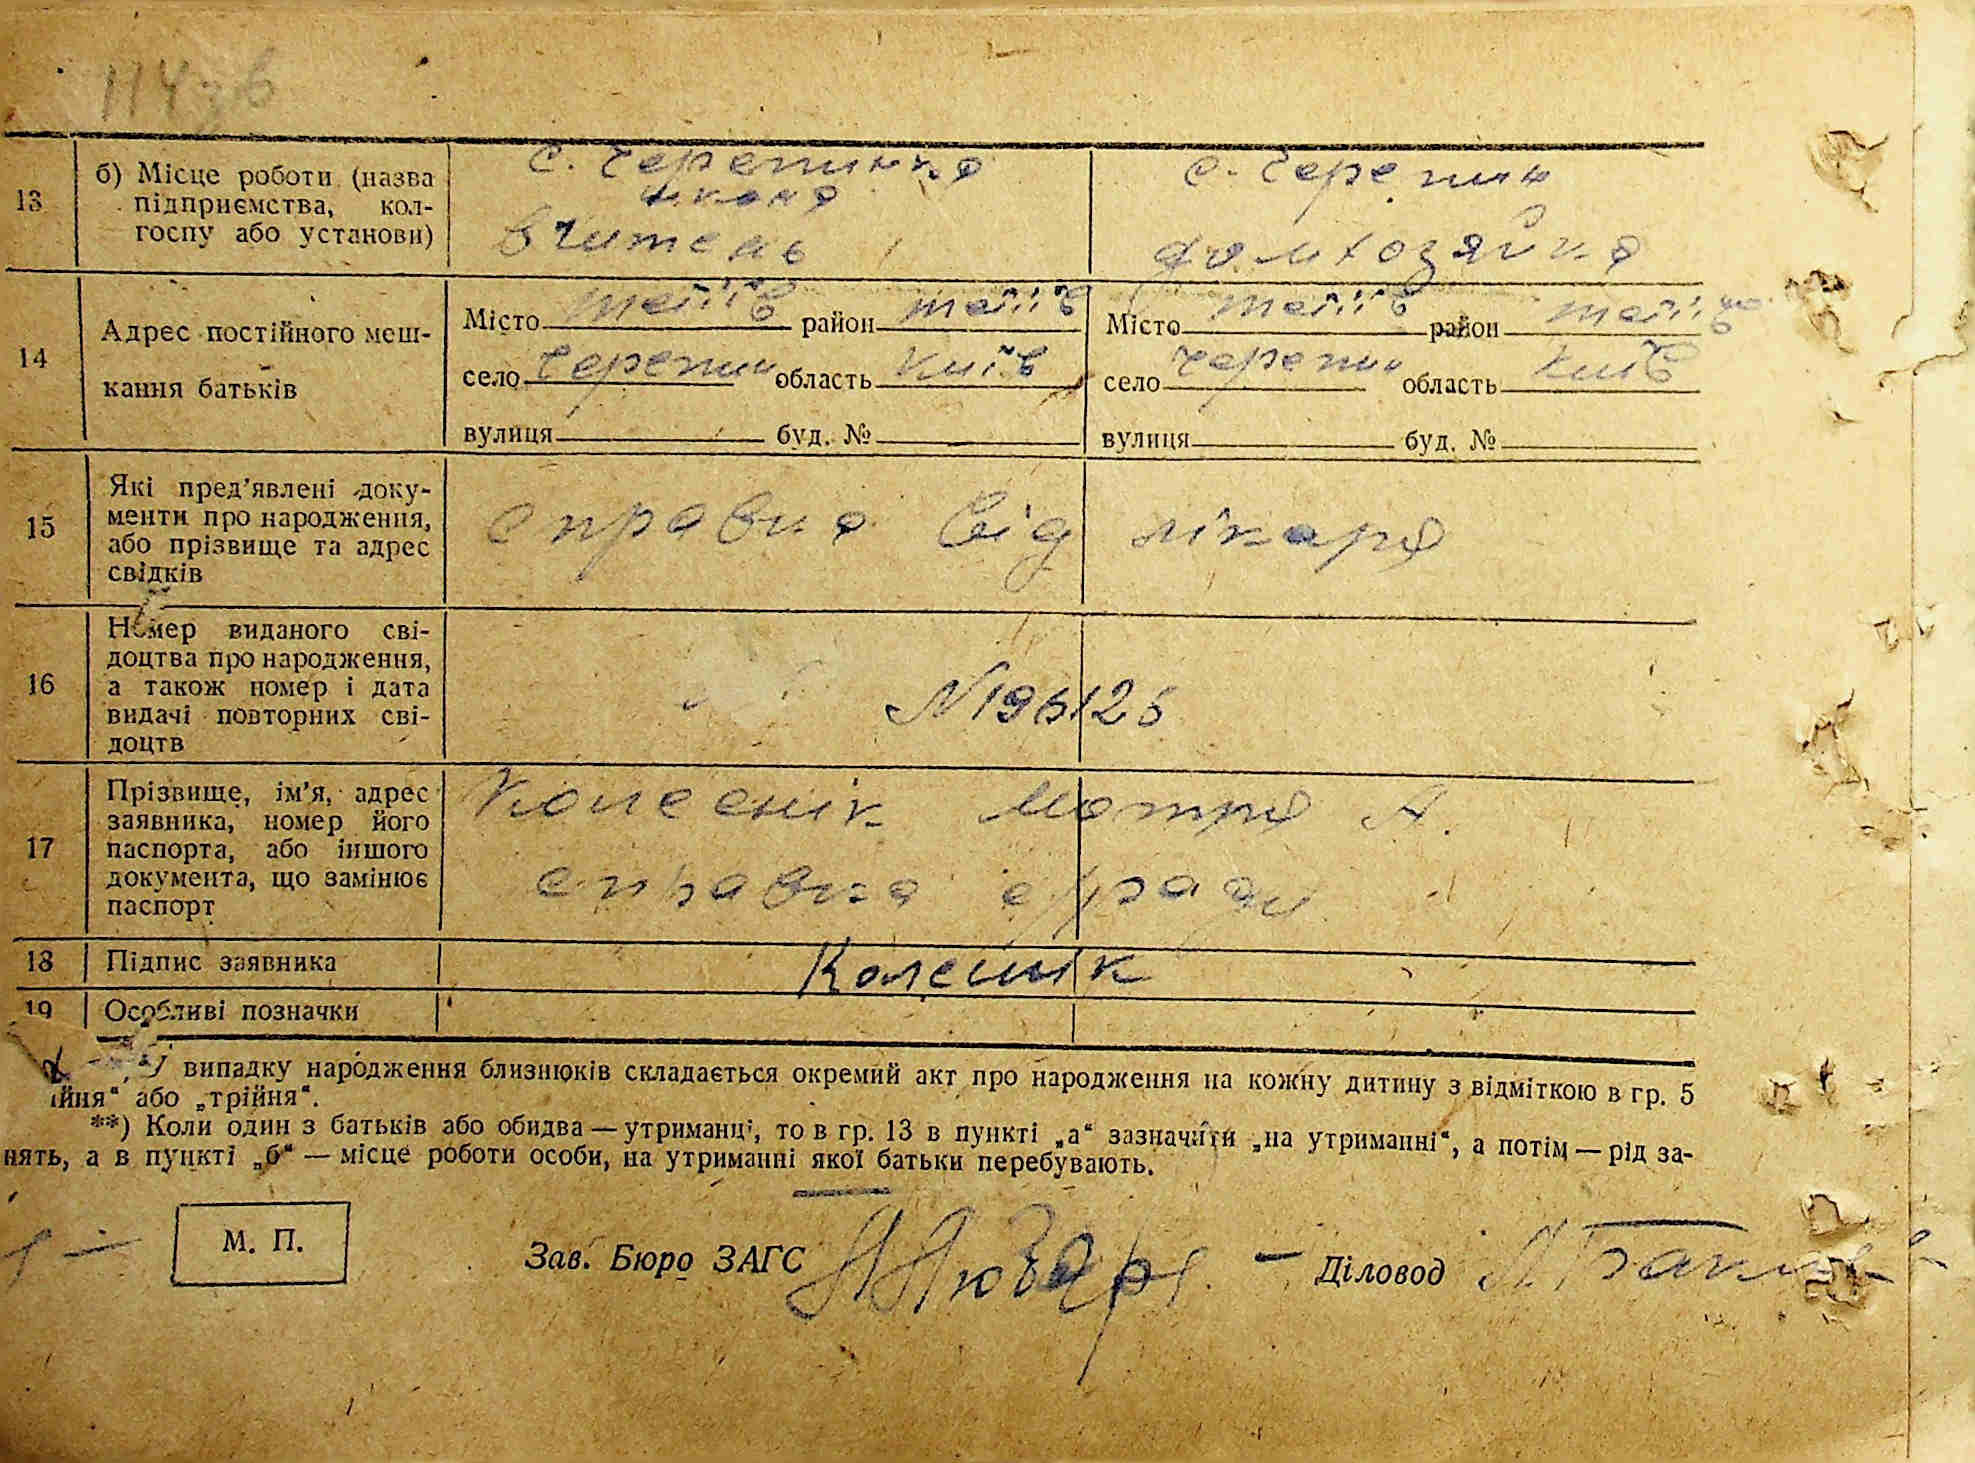 114 зв
13
б) Місце роботи (назва
підприємства, кол-
госпу або установи)
с. Черепинка
школа
вчитель
с. Черепин
домхозяйка
14
Адрес постійного меш-
кання батьків
Місто Тетіїв район Тетіїв
село Черепин область Київ
вулиця буд. №
Місто Тетіїв район Тетіїв
село Черепин область Київ
вулиця буд. №
15
Які пред'явлені доку-
менти про народження,
або прізвище та адрес
свідків
справка від лікаря
16
Номер виданого сві-
доцтва про народження,
а також номер і дата
видачі повторних сві-
доцтв
N 196125
17
Прізвище, ім'я, адрес
заявника, номер його
паспорта, або іншого
документа, що замінює
паспорт
Колеснік Мотря А.
справка с/ради
18
Підпис заявника
Колеснік
19
Особливі позначки
У випадку народження близнюків складається окремий акт про народження на кожну дитину з відміткою в гр. 5
ійня“ або „трійня“.
**) Коли один з батьків або обидва — утриманці, то в гр. 13 в пункті „а“ зазначити „на утриманні“, а потім — рід за-
нять, а в пункті „б“ — місце роботи особи, на утриманні якої батьки перебувають.
М. П.
Зав. Бюро ЗАГС
Діловод